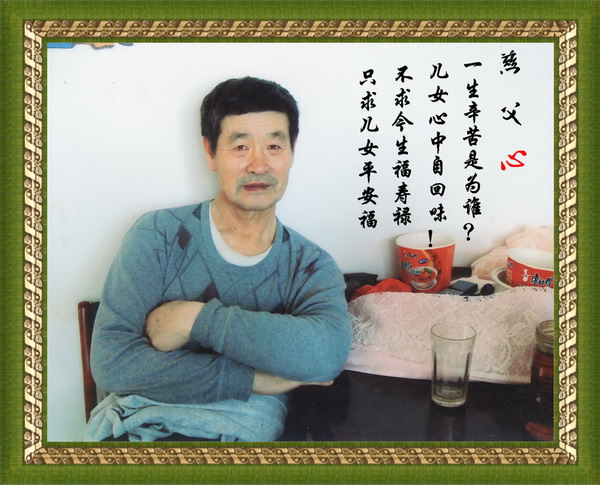 慈父心
一生辛苦是为谁?
儿女心中自回味!
不求今生福寿禄
只求儿女平安福